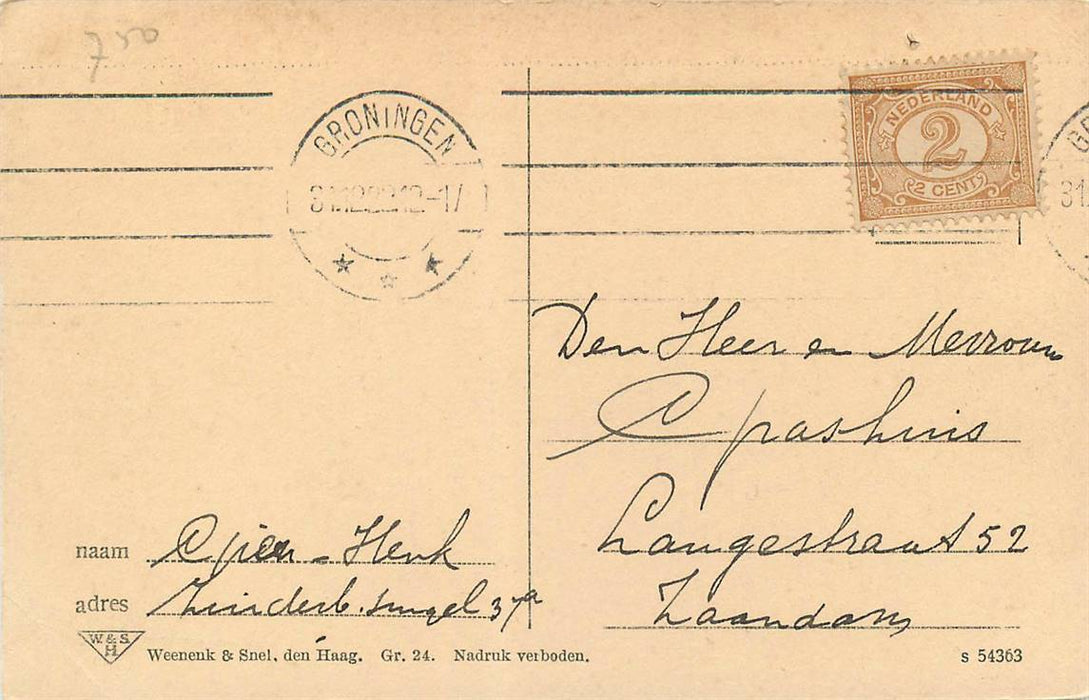 750
GRONINGEN
31.12.22 12-17
NEDERLAND
2
2 CENT
Den Heer en Mevrouw
C
Langestraat 52
Zaandam
naam Henk
adres Zuiderb. singel 37a
W. & S.
H
Weenenk & Snel, den Haag. Gr. 24. Nadruk verboden.
s 54363